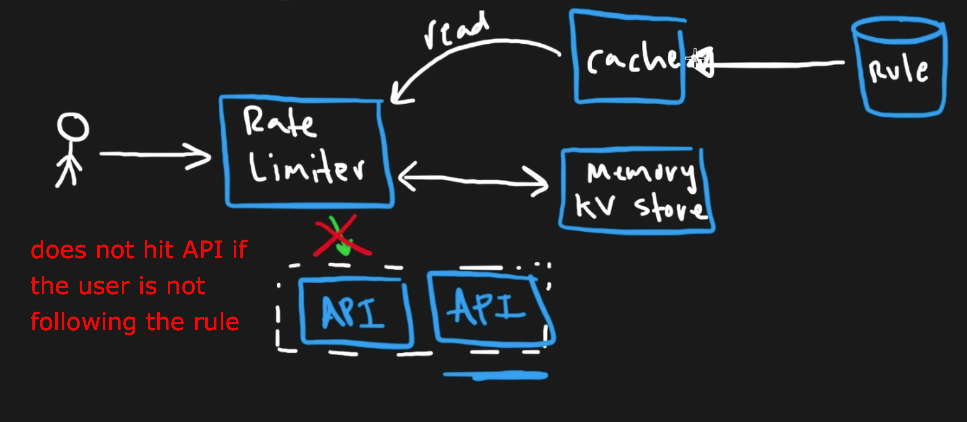 read
cache
Rule
Rate
Limiter
Memory
KV store
does not hit API if
the user is not
following the rule
API
API